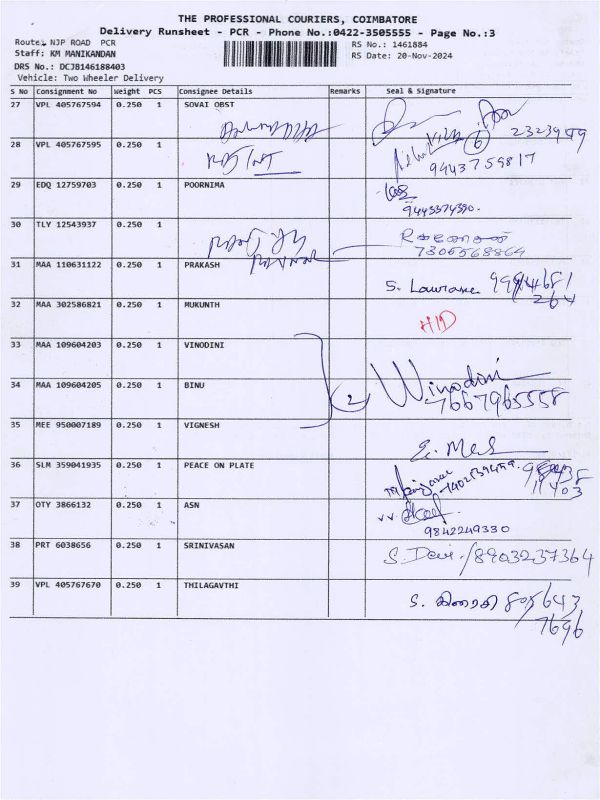 THE PROFESSIONAL COURIERS, COIMBATORE
Delivery Runsheet - PCR - Phone No.:0422-3505555 - Page No.:3
Route: NJP ROAD PCR
RS No.: 1461884
Staff: KM MANIKANDAN
RS Date: 20-Nov-2024
DRS No.: DCJB146188403
Vehicle: Two Wheeler Delivery
S No Consignment No Weight PCS Consignee Details Remarks Seal & Signature
27 VPL 405767594 0.250 1 SOVAI OBST
2323949
28 VPL 405767595 0.250 1
6
9443759817
29 EDQ 12759703 0.250 1 POORNIMA
9445374390.
30 TLY 12543937 0.250 1
7306568864
31 MAA 110631122 0.250 1 PRAKASH
S. Lawrance
264
32 MAA 302586821 0.250 1 MUKUNTH
H/D
33 MAA 109604203 0.250 1 VINODINI
34 MAA 109604205 0.250 1 BINU
2 Winodini
7667965558
35 MEE 950007189 0.250 1 VIGNESH
36 SLM 359041935 0.250 1 PEACE ON PLATE
37 OTY 3866132 0.250 1 ASN
9842249330
38 PRT 6038656 0.250 1 SRINIVASAN
S. Devi /8903237364
39 VPL 405767670 0.250 1 THILAGAVTHI
S.
7696